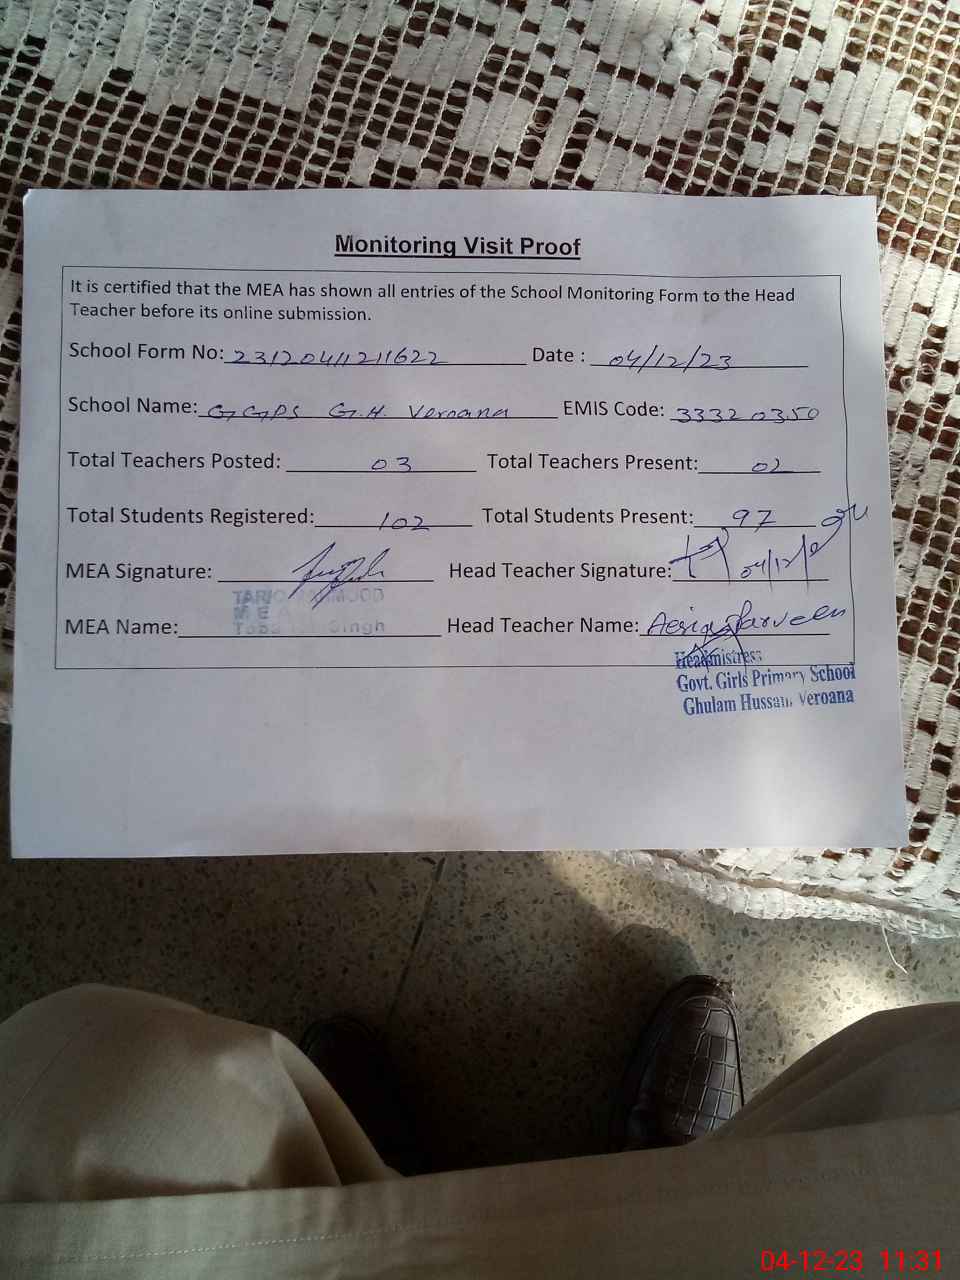 Monitoring Visit Proof
It is certified that the MEA has shown all entries of the School Monitoring Form to the Head
Teacher before its online submission.
School Form No: 23120411211622 Date : 04/12/23
School Name: GGPS G.H. Veroana EMIS Code: 33320350
Total Teachers Posted: 03 Total Teachers Present: 02
Total Students Registered: 102 Total Students Present: 97
MEA Signature: Head Teacher Signature: 04/12/
TARIQ
MEA
MEA Name: Singh Head Teacher Name: Aesia Parveen
Headmistress
Govt. Girls Primary School
Ghulam Hussain Veroana
04-12-23 11:31